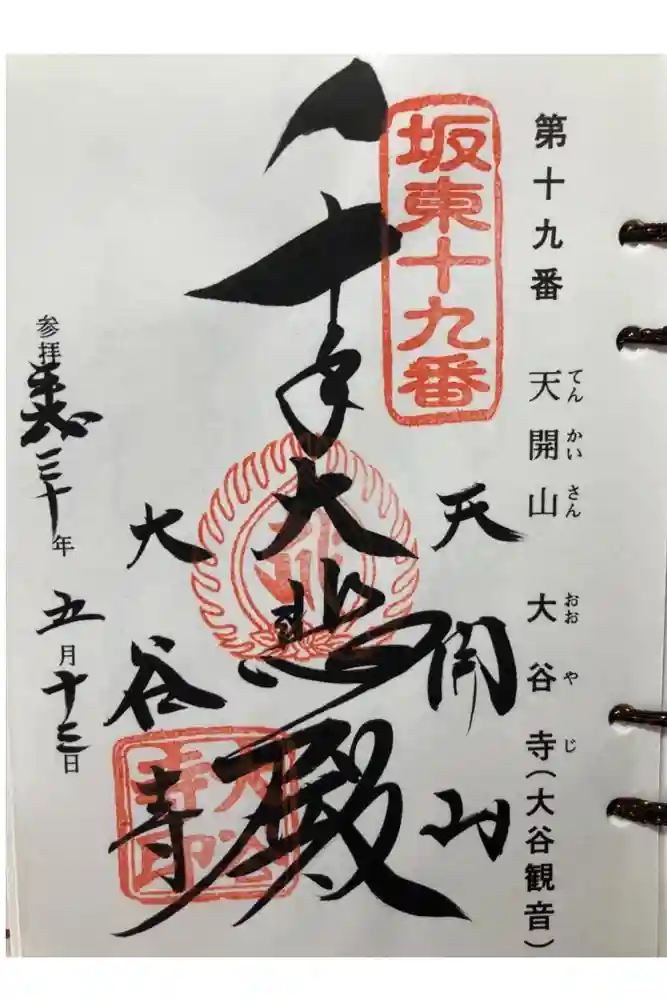 第十九番 天開山 大谷寺(大谷観音)
てん かい さん おお や じ
坂東十九番
天開山
千手大悲殿
大谷寺
大谷寺印
参拝平成三十年五月十三日